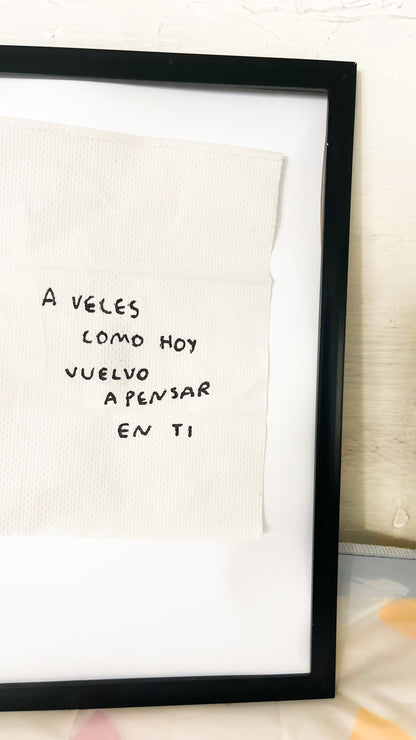 A VECES
COMO HOY
VUELVO
A PENSAR
EN TI